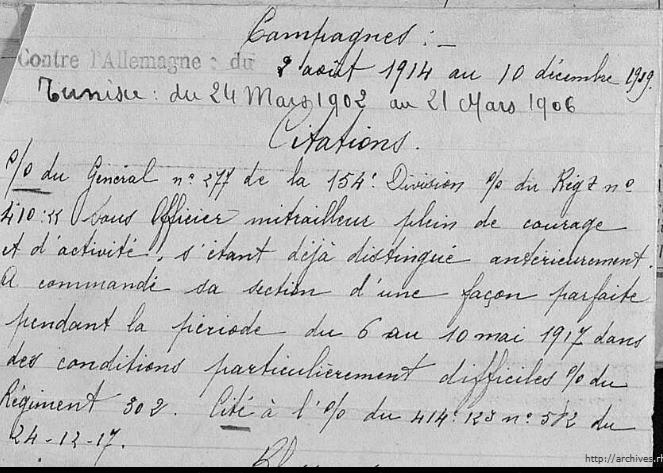 Campagnes :-
Contre l'Allemagne : du 2 août 1914 au 10 décembre 1919.
Tunisie : du 24 Mars 1902 au 21 Mars 1906
Citations.
O/O du Général n° 277 de la 154e Division O/O du Régt n°
410: Sous Officier mitrailleur plein de courage
et d'activité, s'étant déjà distingué antérieurement.
A commandé sa section d'une façon parfaite
pendant la période du 6 au 10 mai 1917 dans
des conditions particulièrement difficiles O/O du
Régiment 302. Cité à l'O/O du 414e n° 582 du
24-12-17.
http://archives.r